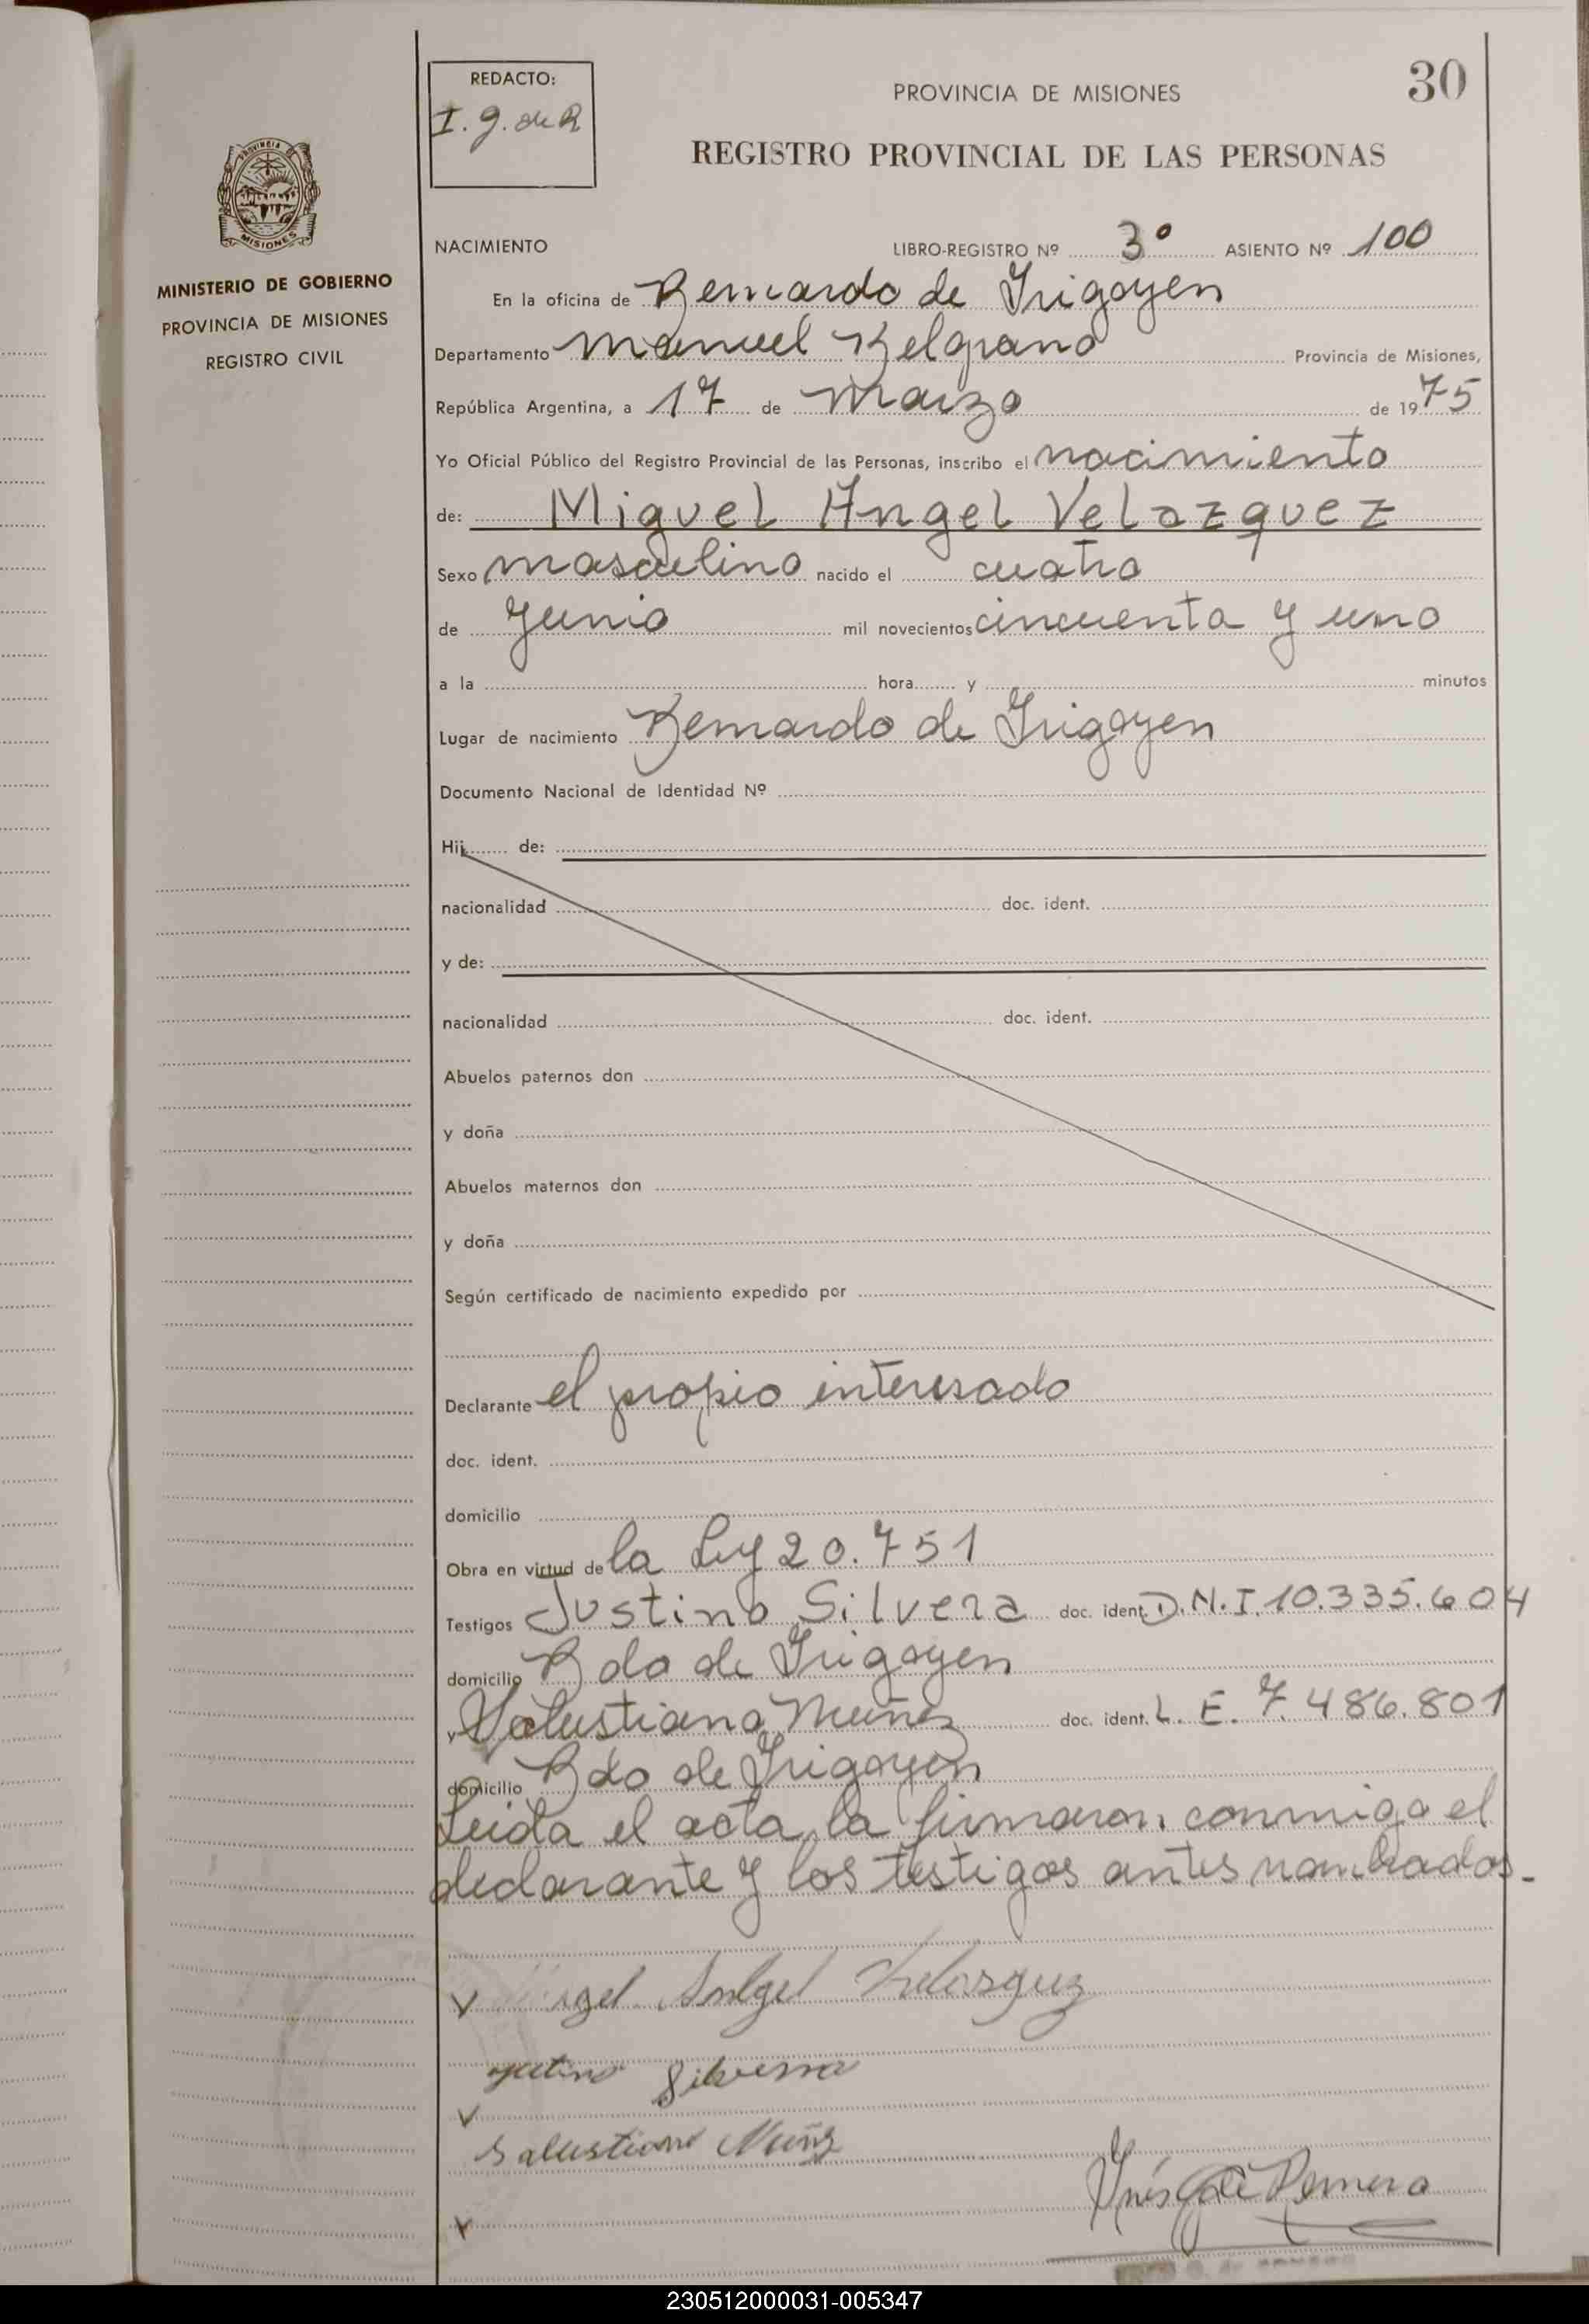 30
REDACTO:
I. g. de R
PROVINCIA DE MISIONES
REGISTRO PROVINCIAL DE LAS PERSONAS
PROVINCIA DE
MISIONES
MINISTERIO DE GOBIERNO
PROVINCIA DE MISIONES
REGISTRO CIVIL
NACIMIENTO LIBRO-REGISTRO Nº 3º ASIENTO Nº 100
En la oficina de Bernardo de Irigoyen
Departamento Manuel Belgrano Provincia de Misiones,
República Argentina, a 17 de Marzo de 1975
Yo Oficial Público del Registro Provincial de las Personas, inscribo el nacimiento
de: Miguel Angel Velazquez
Sexo masculino nacido el cuatro
de Junio mil novecientos cincuenta y uno
a la hora y minutos
Lugar de nacimiento Bernardo de Irigoyen
Documento Nacional de Identidad Nº
Hij de:
nacionalidad doc. ident.
y de:
nacionalidad doc. ident.
Abuelos paternos don
y doña
Abuelos maternos don
y doña
Según certificado de nacimiento expedido por
Declarante el propio interesado
doc. ident.
domicilio
Obra en virtud de la Ley 20.751
Testigos Justino Silvera doc. ident. D.N.I. 10.335.604
domicilio Bdo de Irigoyen
y Salustiano Muñez doc. ident. L. E. 7.486.801
domicilio Bdo de Irigoyen
Leida el acta, la firmaron conmigo el
declarante y los testigos antes nombrados.-
Angel Velasquez
Silvera
Salustiano
Inés G de Romero
230512000031-005347